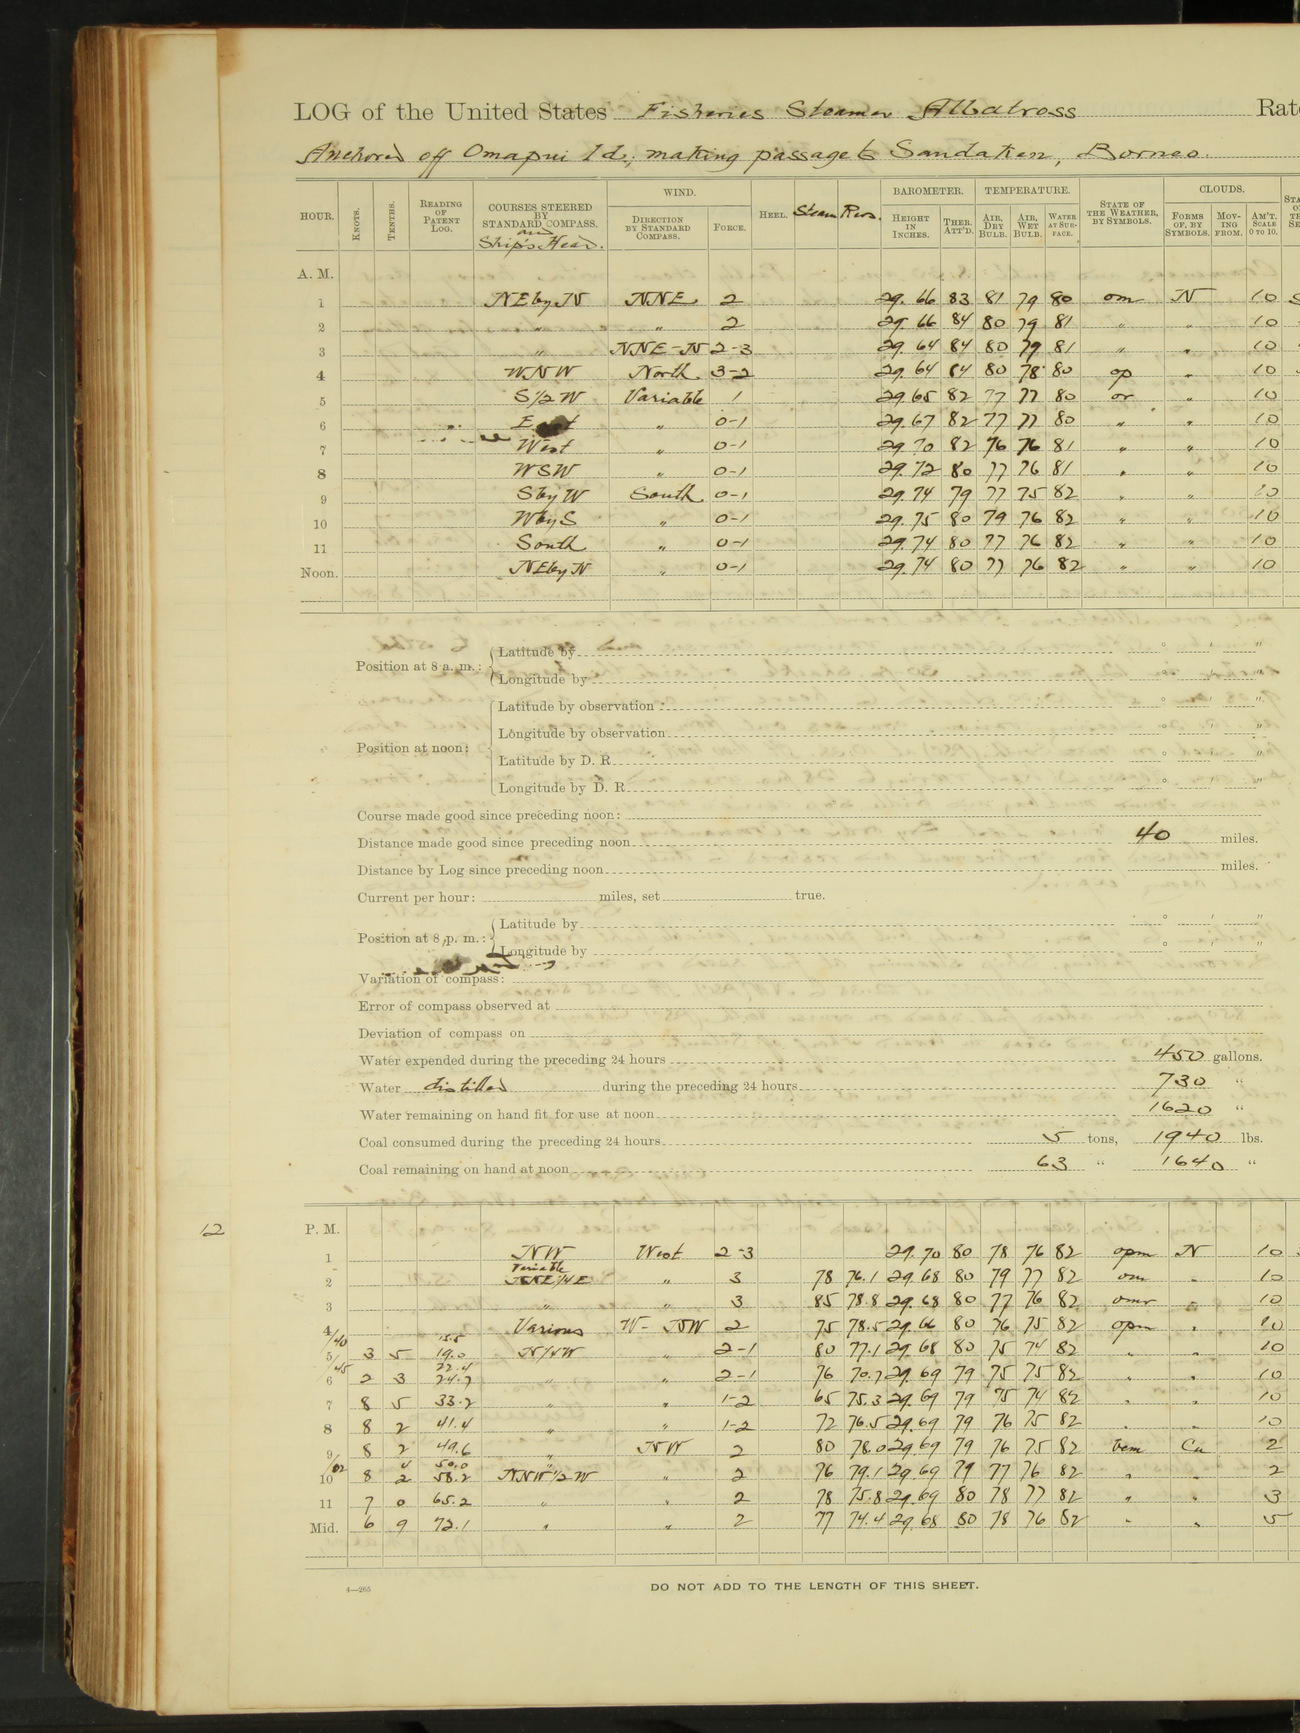 LOG of the United States Fisheries Steamer Albatross Rate
Anchored off Omapui Id.; making passage to Sandakan, Borneo.
HOUR. KNOTS. TENTHS. READING OF PATENT LOG. COURSES STEERED BY STANDARD COMPASS. and Ship's Head. WIND. DIRECTION BY STANDARD COMPASS. FORCE. HEEL. Steam Revs. BAROMETER. HEIGHT IN INCHES. THER. ATT'D. TEMPERATURE. AIR, DRY BULB. AIR, WET BULB. WATER AT SURFACE. STATE OF THE WEATHER, BY SYMBOLS. CLOUDS. FORMS OF, BY SYMBOLS. MOVING FROM. AM'T. SCALE 0 TO 10.
A. M.
1 NE by N NNE 2 29.66 83 81 79 80 om N 10
2 " " 2 29.66 84 80 79 81 " " 10
3 " NNE-N 2-3 29.64 84 80 79 81 " " 10
4 WNW North 3-2 29.64 84 80 78 80 op " 10
5 S 1/2 W Variable 1 29.65 82 77 77 80 or " 10
6 East " 0-1 29.67 82 77 77 80 " " 10
7 West " 0-1 29.70 82 76 76 81 " " 10
8 WSW " 0-1 29.72 80 77 76 81 " " 10
9 S by W South 0-1 29.74 79 77 75 82 " " 10
10 W by S " 0-1 29.75 80 79 76 82 " " 10
11 South " 0-1 29.74 80 77 76 82 " " 10
Noon. NE by N " 0-1 29.74 80 77 76 82 " " 10
Position at 8 a. m.: Latitude by ° ' "
Longitude by ° ' "
Position at noon: Latitude by observation ° ' "
Longitude by observation ° ' "
Latitude by D. R. ° ' "
Longitude by D. R. ° ' "
Course made good since preceding noon:
Distance made good since preceding noon 40 miles.
Distance by Log since preceding noon miles.
Current per hour: miles, set true.
Position at 8 p. m.: Latitude by ° ' "
Longitude by ° ' "
Variation of compass:
Error of compass observed at
Deviation of compass on
Water expended during the preceding 24 hours 450 gallons.
Water distilled during the preceding 24 hours 730 "
Water remaining on hand fit for use at noon 1620 "
Coal consumed during the preceding 24 hours 5 tons, 1940 lbs.
Coal remaining on hand at noon 63 " 1640 "
12
P. M.
1 NW West 2-3 29.70 80 78 76 82 opm N 10
Variable
2 NNE 1/4 E " 3 78 76.1 29.68 80 79 77 82 om " 10
3 " " 3 85 78.8 29.68 80 77 76 82 omr " 10
4 Various W-NW 2 75 78.5 29.66 80 76 75 82 opm " 10
/40 15.5
5 3 5 19.0 N 1/4 W " 2-1 80 77.1 29.68 80 75 74 82 " " 10
/45 22.4
6 2 3 24.7 " " 2-1 76 70.7 29.69 79 75 75 82 " " 10
7 8 5 33.2 " " 1-2 65 75.3 29.69 79 75 74 82 " " 10
8 8 2 41.4 " " 1-2 72 76.5 29.69 79 76 75 82 " " 10
9 8 2 49.6 " NW 2 80 78.0 29.69 79 76 75 82 bcm Cu 2
/02 4 50.0 "
10 8 2 58.2 NNW 1/2 W " 2 76 79.1 29.69 79 77 76 82 " " 2
11 7 0 65.2 " " 2 78 75.8 29.69 80 78 77 82 " " 3
Mid. 6 9 72.1 " " 2 77 74.4 29.68 80 78 76 82 " " 5
4—265 DO NOT ADD TO THE LENGTH OF THIS SHEET.